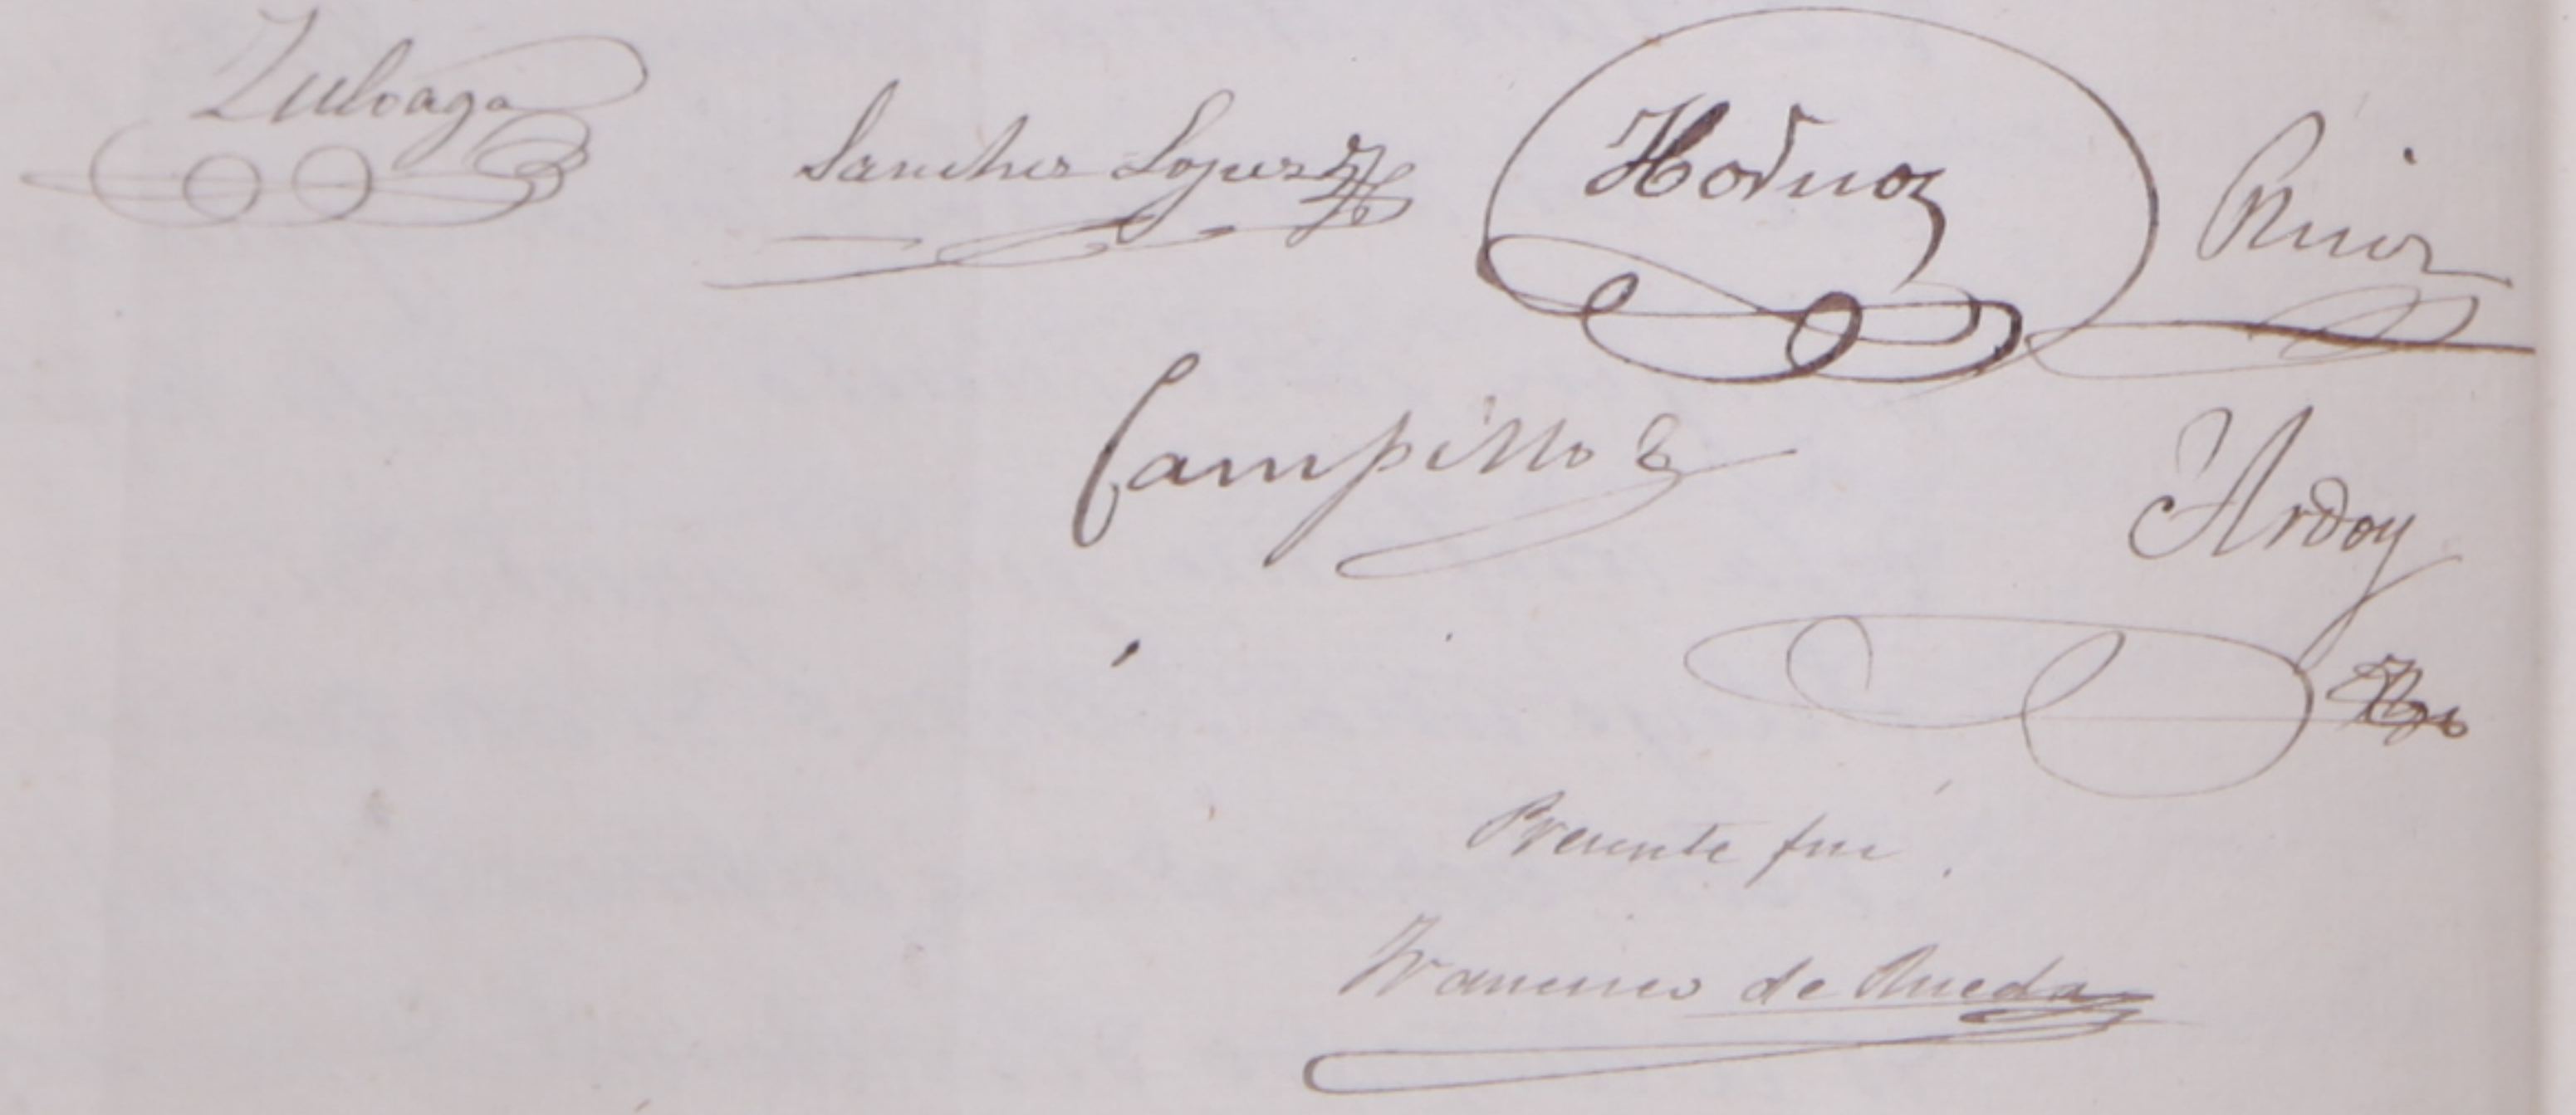 Zuloaga Sanchez Lopez Ruiz
Campillo Ardoy
Presente fui
Francisco de Rueda